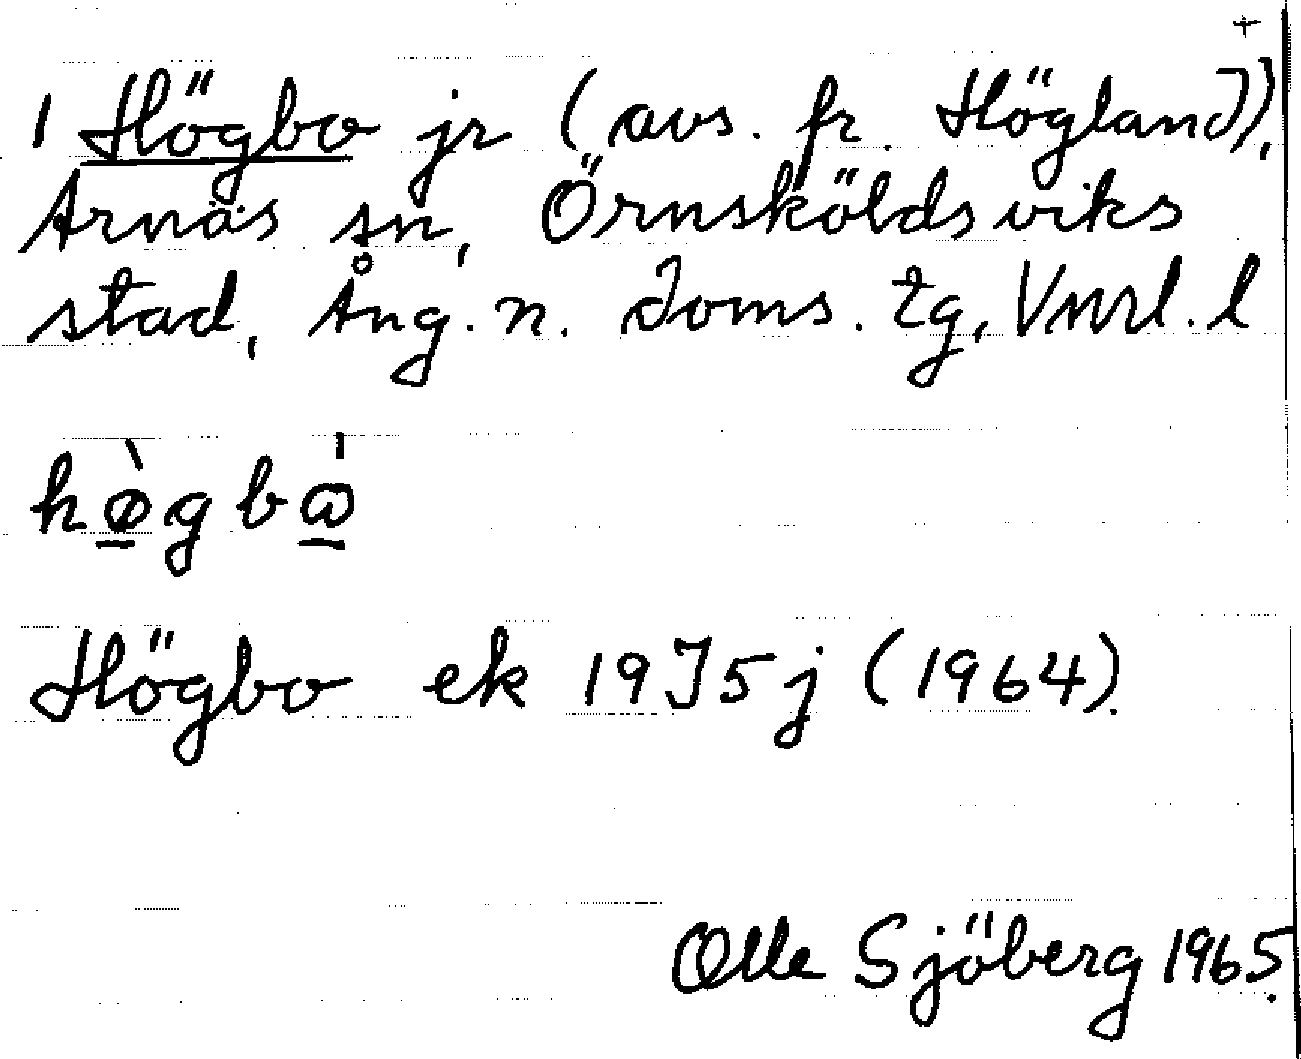 +
1 Högbo jr (avs. fr. Högland),
Arnäs sn, Örnsköldsviks
stad, Ång. n. doms. tg, Vnrl. l
hø̀gbω̍
Högbo ek 19J5j (1964).
Olle Sjöberg 1965.